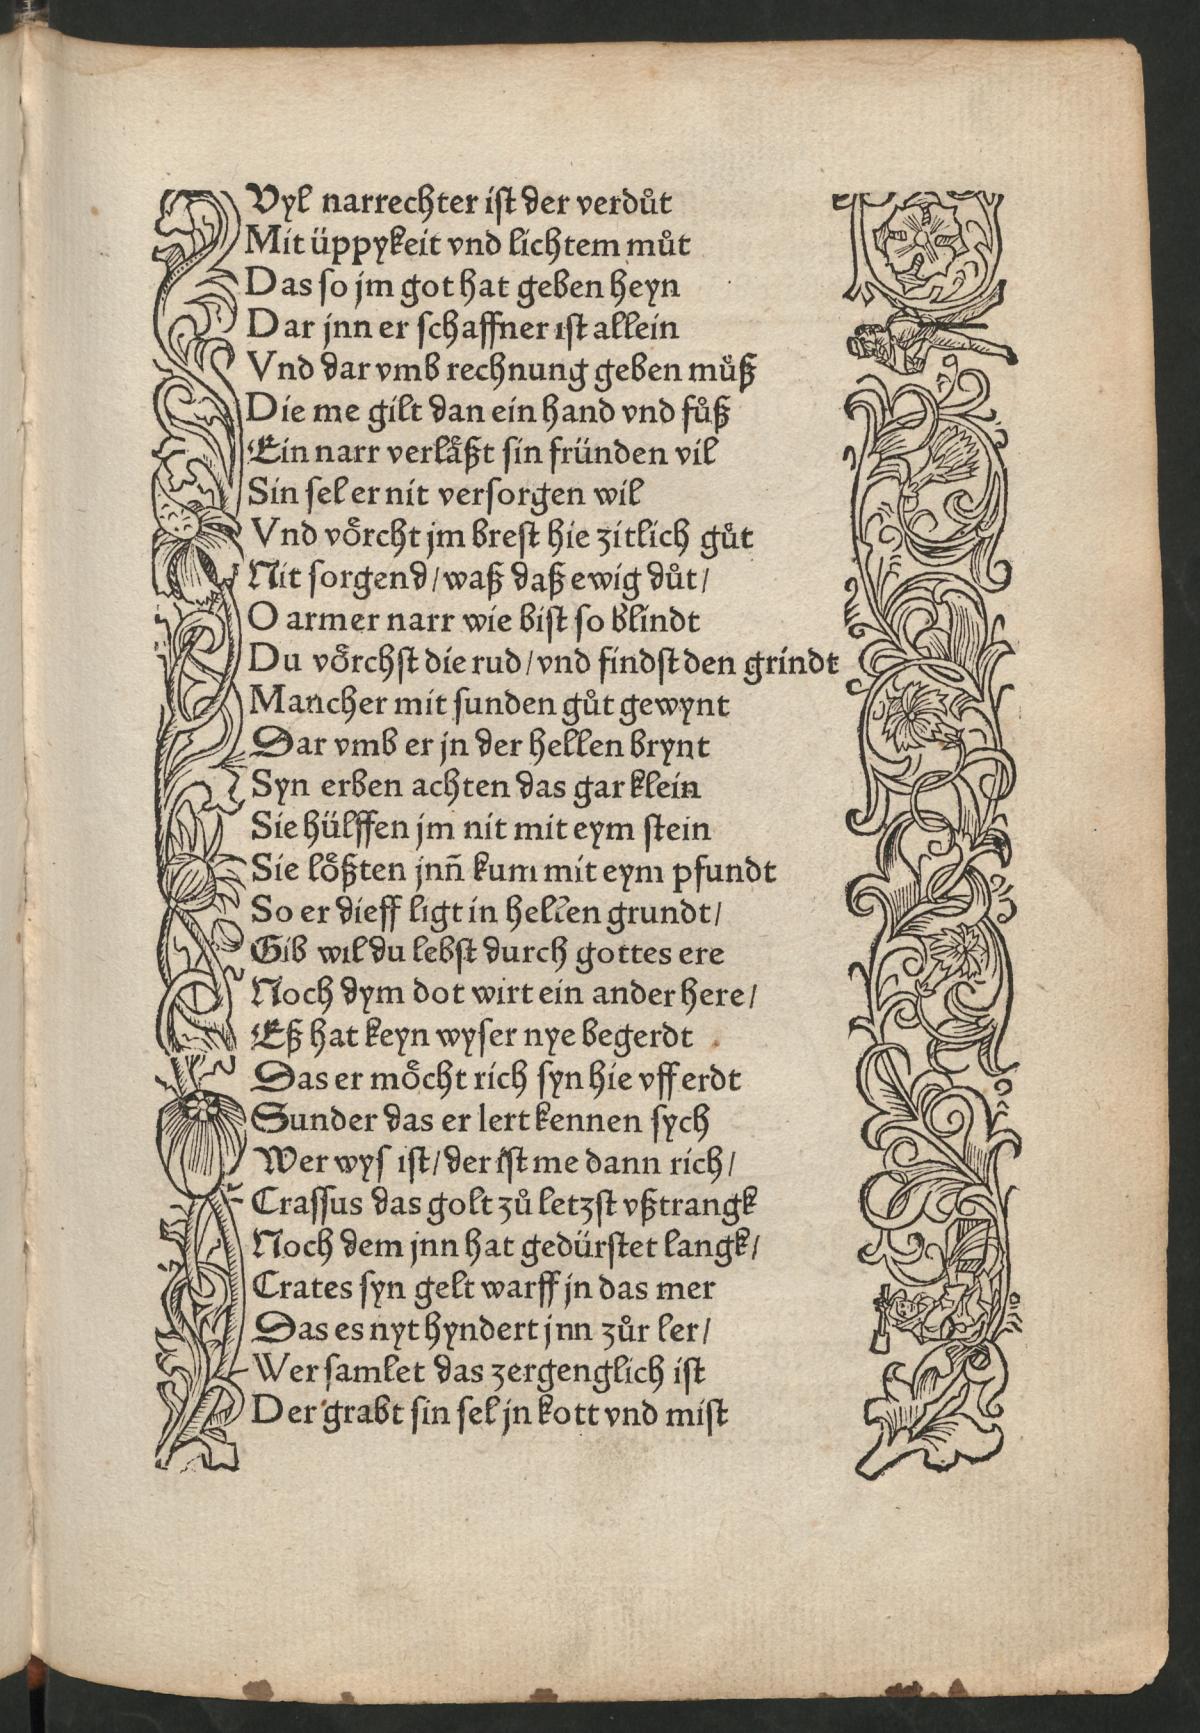 Vyl narrechter ist der verdůt
Mit üppykeit vnd lichtem můt
Das so jm got hat geben heyn
Dar jnn er schaffner ist allein
Vnd dar vmb rechnung geben můß
Die me gilt dan ein hand vnd fůß
Ein narr verlåßt sin fründen vil
Sin sel er nit versorgen wil
Vnd võrcht jm brest hie zitlich gůt
Nit sorgend/ waß daß ewig důt/
O armer narr wie bist so blindt
Du võrchst die rud/ vnd findst den grindt
Mancher mit sunden gůt gewynt
Dar vmb er jn der hellen brynt
Syn erben achten das gar klein
Sie hülffen jm nit mit eym stein
Sie lõßten jnñ kum mit eym pfundt
So er dieff ligt in hellen grundt/
Gib wil du lebst durch gottes ere
Noch dym dot wirt ein ander here/
Eß hat keyn wyser nye begerdt
Das er mõcht rich syn hie vff erdt
Sunder das er lert kennen sych
Wer wys ist/ der ist me dann rich/
Crassus das golt zů letzst vßtrangk
Noch dem jnn hat gedürstet langk/
Crates syn gelt warff jn das mer
Das es nyt hyndert jnn zůr ler/
Wer samlet das zergenglich ist
Der grabt sin sel jn kott vnd mist